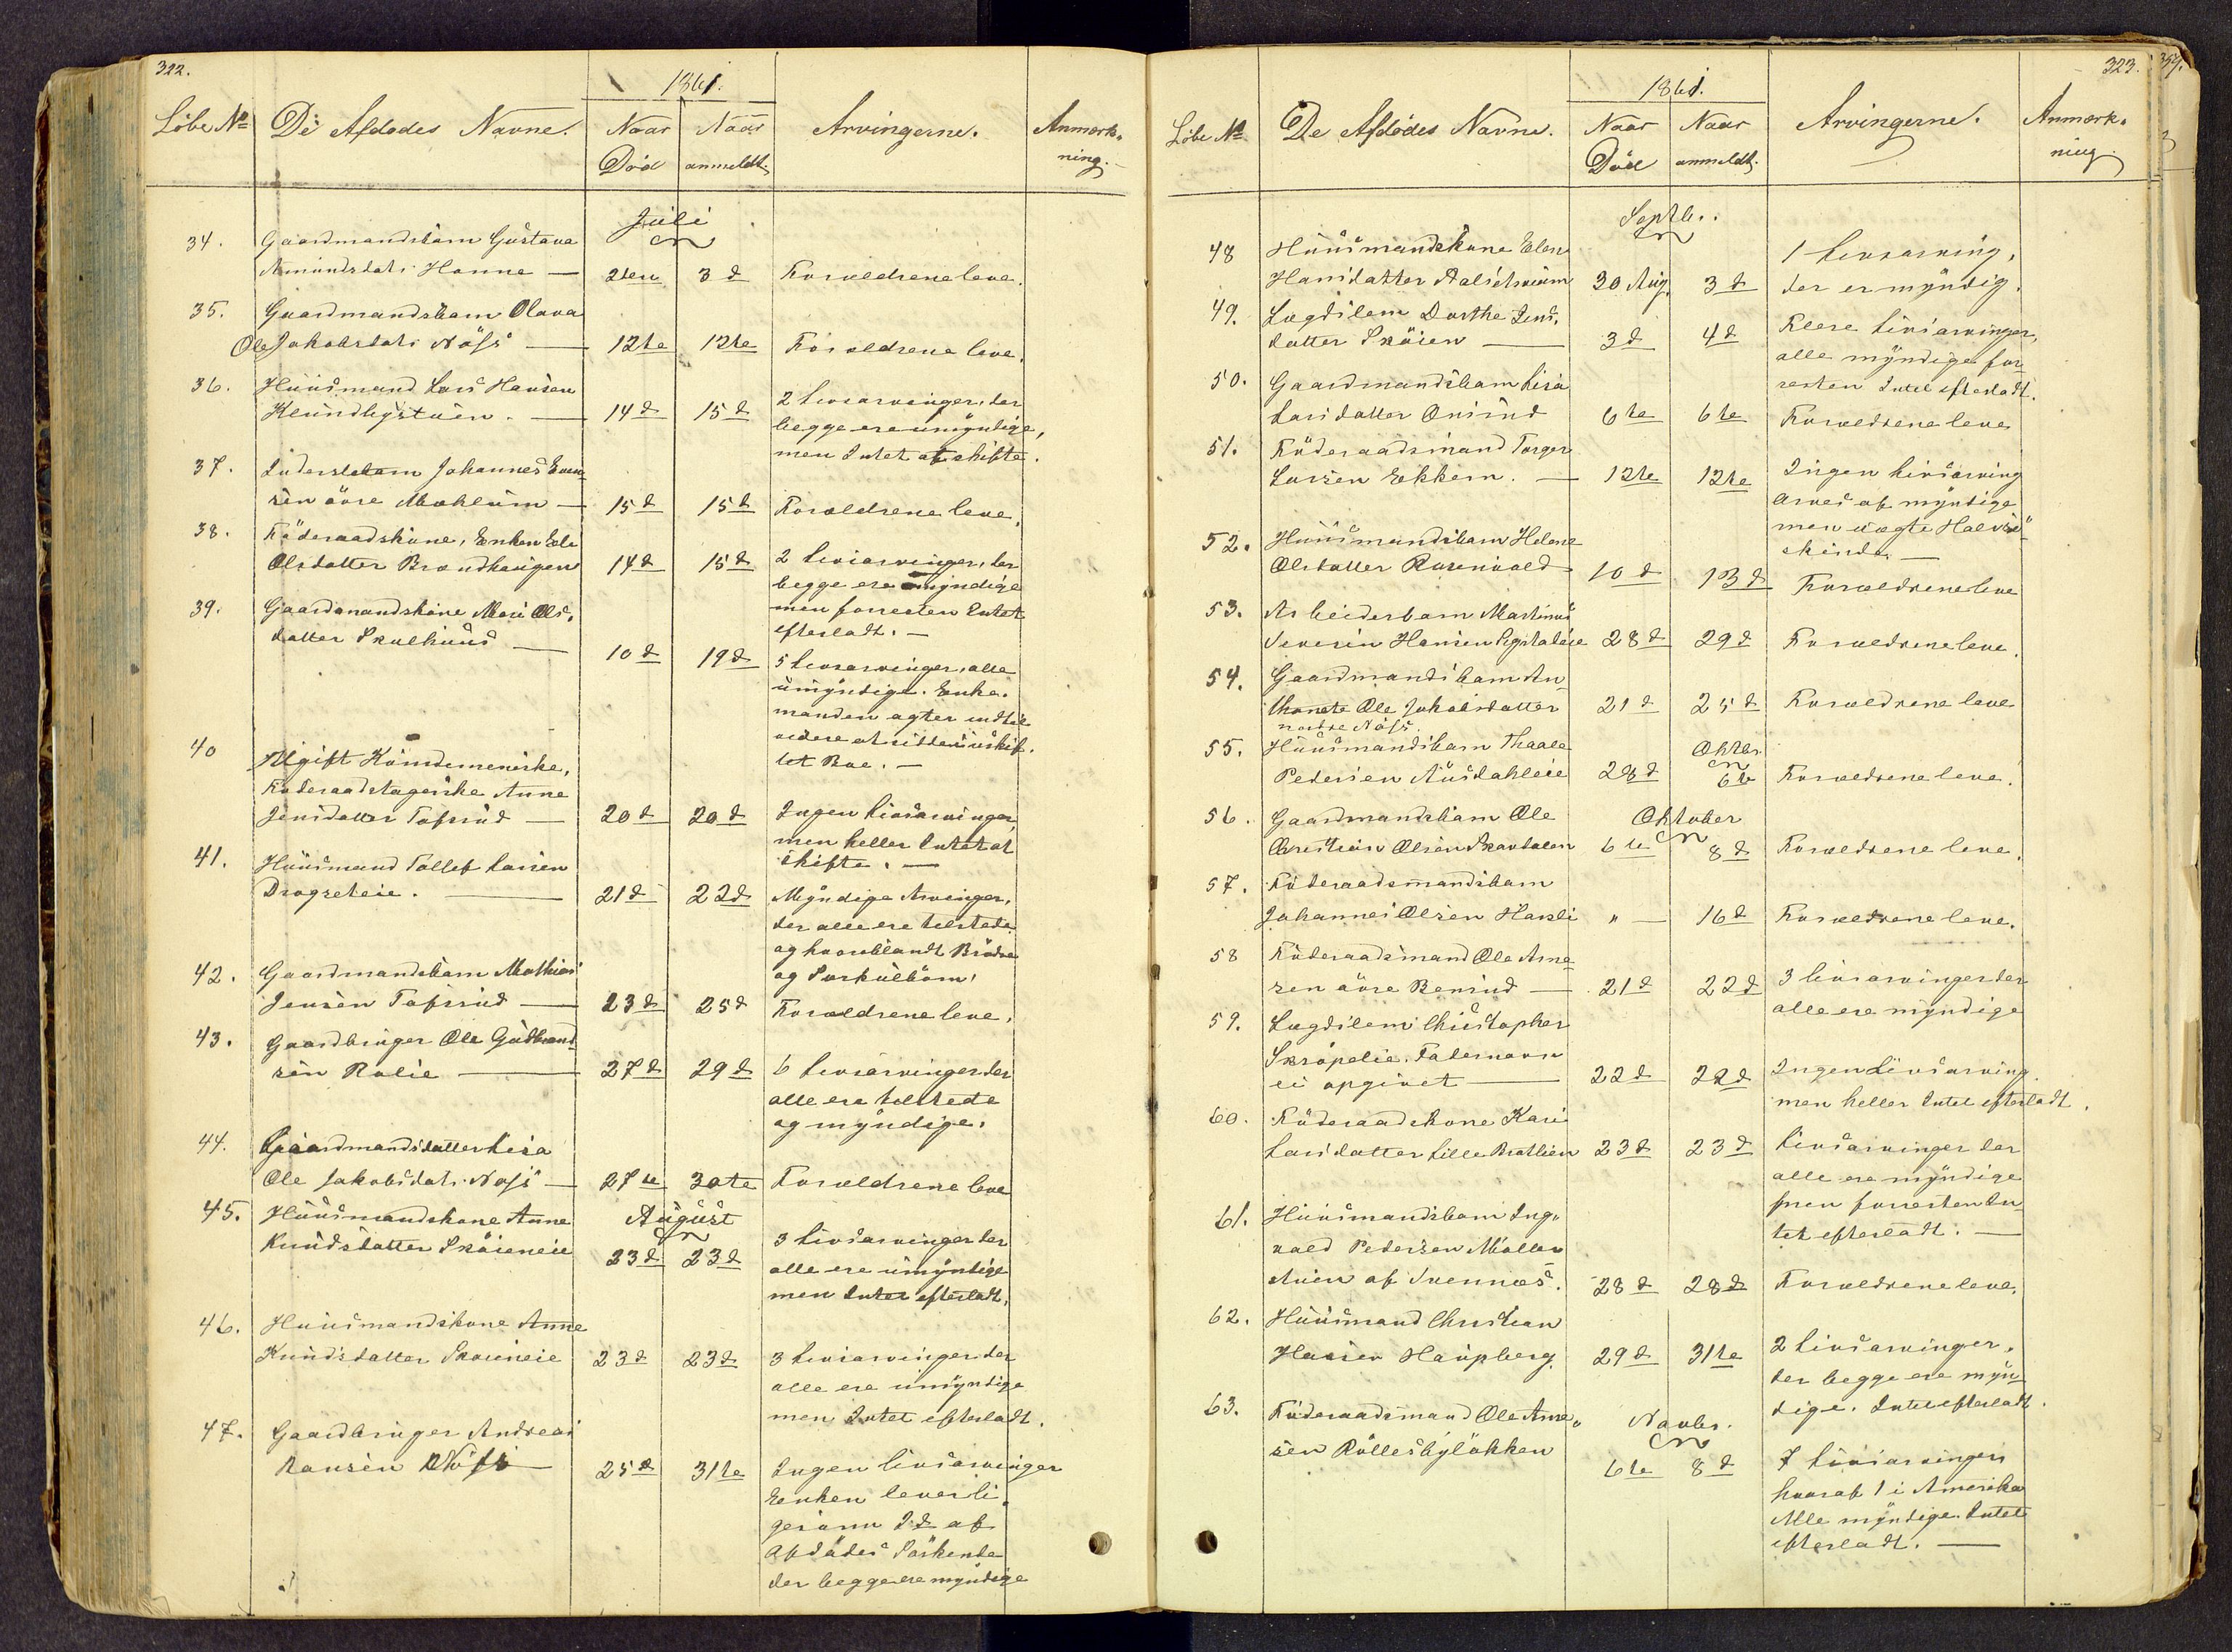 322.
1861.
Löbe No De Afdödes Navne. Naar Död Naar anmeldt. Arvingerne. Anmærkning.
Juli
34. Gaardmandsbarn Gustava
Amundsdatr. Hanne — 2den 3d Forældrene leve.
35. Gaardmandsbarn Olava
Ole Jakobsdatr. Näss — 12te 12te Forældrene leve.
36. Huusmand Lars Hansen
Klundbystuen. — 14d 15d 2 Livsarvinger, der
begge ere umyndige,
men Intet at skifte.
37. Inderstebarn Johannes Even-
sen övre Mæhlum — 15d 15d Forældrene leve.
38. Föderaadskone, Enken Eli
Olsdatter Brændhaugen 14d 15d 2 Livsarvinger, der
begge ere myndige
men forresten Intet
efterladt. —
39. Gaardmandskone Mari Ols-
datter Skulhuus — 10d 19d 5 Livsarvinger, alle
umyndige. Enke-
manden agter indtil
videre at sidde i uskif-
tet Boe. —
40 Ugift Kvindemeniske,
Föderaadstagerske Anne
Jensdatter Tofsrud — 20d 20d Ingen Livsarvinger,
men heller Intet at
skifte. —
41. Huusmand Tollef Larsen
Drogseteie. — 21d 22d Myndige Arvinger,
der alle ere tilstede
og hvoriblandt Brödre
og Sörskilbörn.
42. Gaardmandsbarn Mathias
Jensen Tofsrud — 23d 25d Forældrene leve.
43. Gaardbruger Ole Gudbrand-
sen Rolie — 27d 29d 6 Livsarvinger der
alle ere tilstede
og myndige.
44. Gaardmandsdatter Lisa
Ole Jakobsdatr. Näss — 27de 30te Forældrene leve
August
45. Huusmandskone Anne
Knudsdatter Sköieneie 23d 23d 3 Livsarvinger der
alle ere umyndige
men Intet efterladt.
46. Huusmandskone Anne
Knudsdatter Sköieneie 23d 23d 3 Livsarvinger der
alle ere umyndige
men Intet efterladt.
47. Gaardbruger Andreas
Hansen Näss — 25d 31te Ingen Livsarvinger
Enken lever li-
gesom 2d af
Afdödes Söskende
der begge ere myndige
323.
1861.
Löbe No De Afdödes Navne. Naar Död Naar anmeldt. Arvingerne. Anmærkning.
Septb.
48 Huusmandskone Elen
Hansdatter 30 Aug. 3d 1 Livsarving,
der er myndig.
49. Lægdslem Dorthe Jens-
datter Sköien — 3d 4d Flere Livsarvinger,
alle myndige for-
resten Intet efterladt.
50. Gaardmandsbarn Lisa
Larsdatter Onsrud 6te 6te Forældrene leve
51. Föderaadsmand Torger
Larsen Ekkern. — 12te 12te Ingen Livsarving
Arves af myndige
men uægte Halvsö-
skinde. —
52. Huusmandsbarn Helene
Olsdatter Rosenvold 10d 13d Forældrene leve
53. Arbeiderbarn Martinus
Severin Hansen 28d 29d Forældrene leve.
54. Gaardmandsbarn An-
thonete Ole Jakobsdatter 21d 25d Forældrene leve
nordre Näss.
55. Huusmandsbarn Thaale
Pedersen Ausdahleie 28d Oktbr. 6te Forældrene leve.
Oktober
56. Gaardmandsbarn Ole
Christian Olsen Skardalen 6te 8d Forældrene leve.
57. Föderaadsmandsbarn
Johannes Olsen Hasli " — 16d Forældrene leve.
58 Föderaadsmand Ole Arne-
sen övre Benrud — 21d 22d 3 Livsarvinger der
alle ere myndige
59. Lægdslem Christopher
Skröpelie. Fadernavn
ei opgivet — 22d 22d Ingen Livsarving
men heller Intet efterladt.
60. Föderaadskone Kari
Larsdatter Lille Brathien 23d 23d Livsarvinger der
alle ere myndige
men forresten In-
tet efterladt. —
61. Huusmandsbarn Ing-
vald Pedersen Mölle-
stuen af Svennæs. 28d 28d Forældrene leve.
62. Huusmand Christian
Hansen Haugsberg. 29d 31te 2 Livsarvinger,
der begge ere myn-
dige. Intet efterladt.
Novbr.
63. Föderaadsmand Ole Arne-
sen Röllesbylökken 6te 8d 7 Livsarvinger
hvoraf 1 i Amerika
Alle myndige. Intet
efterladt. —